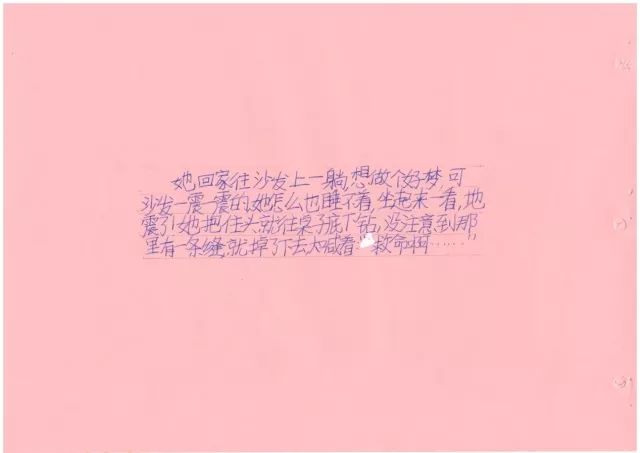 她回家往沙发上一躺,想做个好梦,可
沙发一震一震的,她怎么也睡不着,坐起来一看,地
震了,她抱住头就往桌子底下钻,没注意到那
里有一条缝,就掉了下去大喊着“救命啊……”